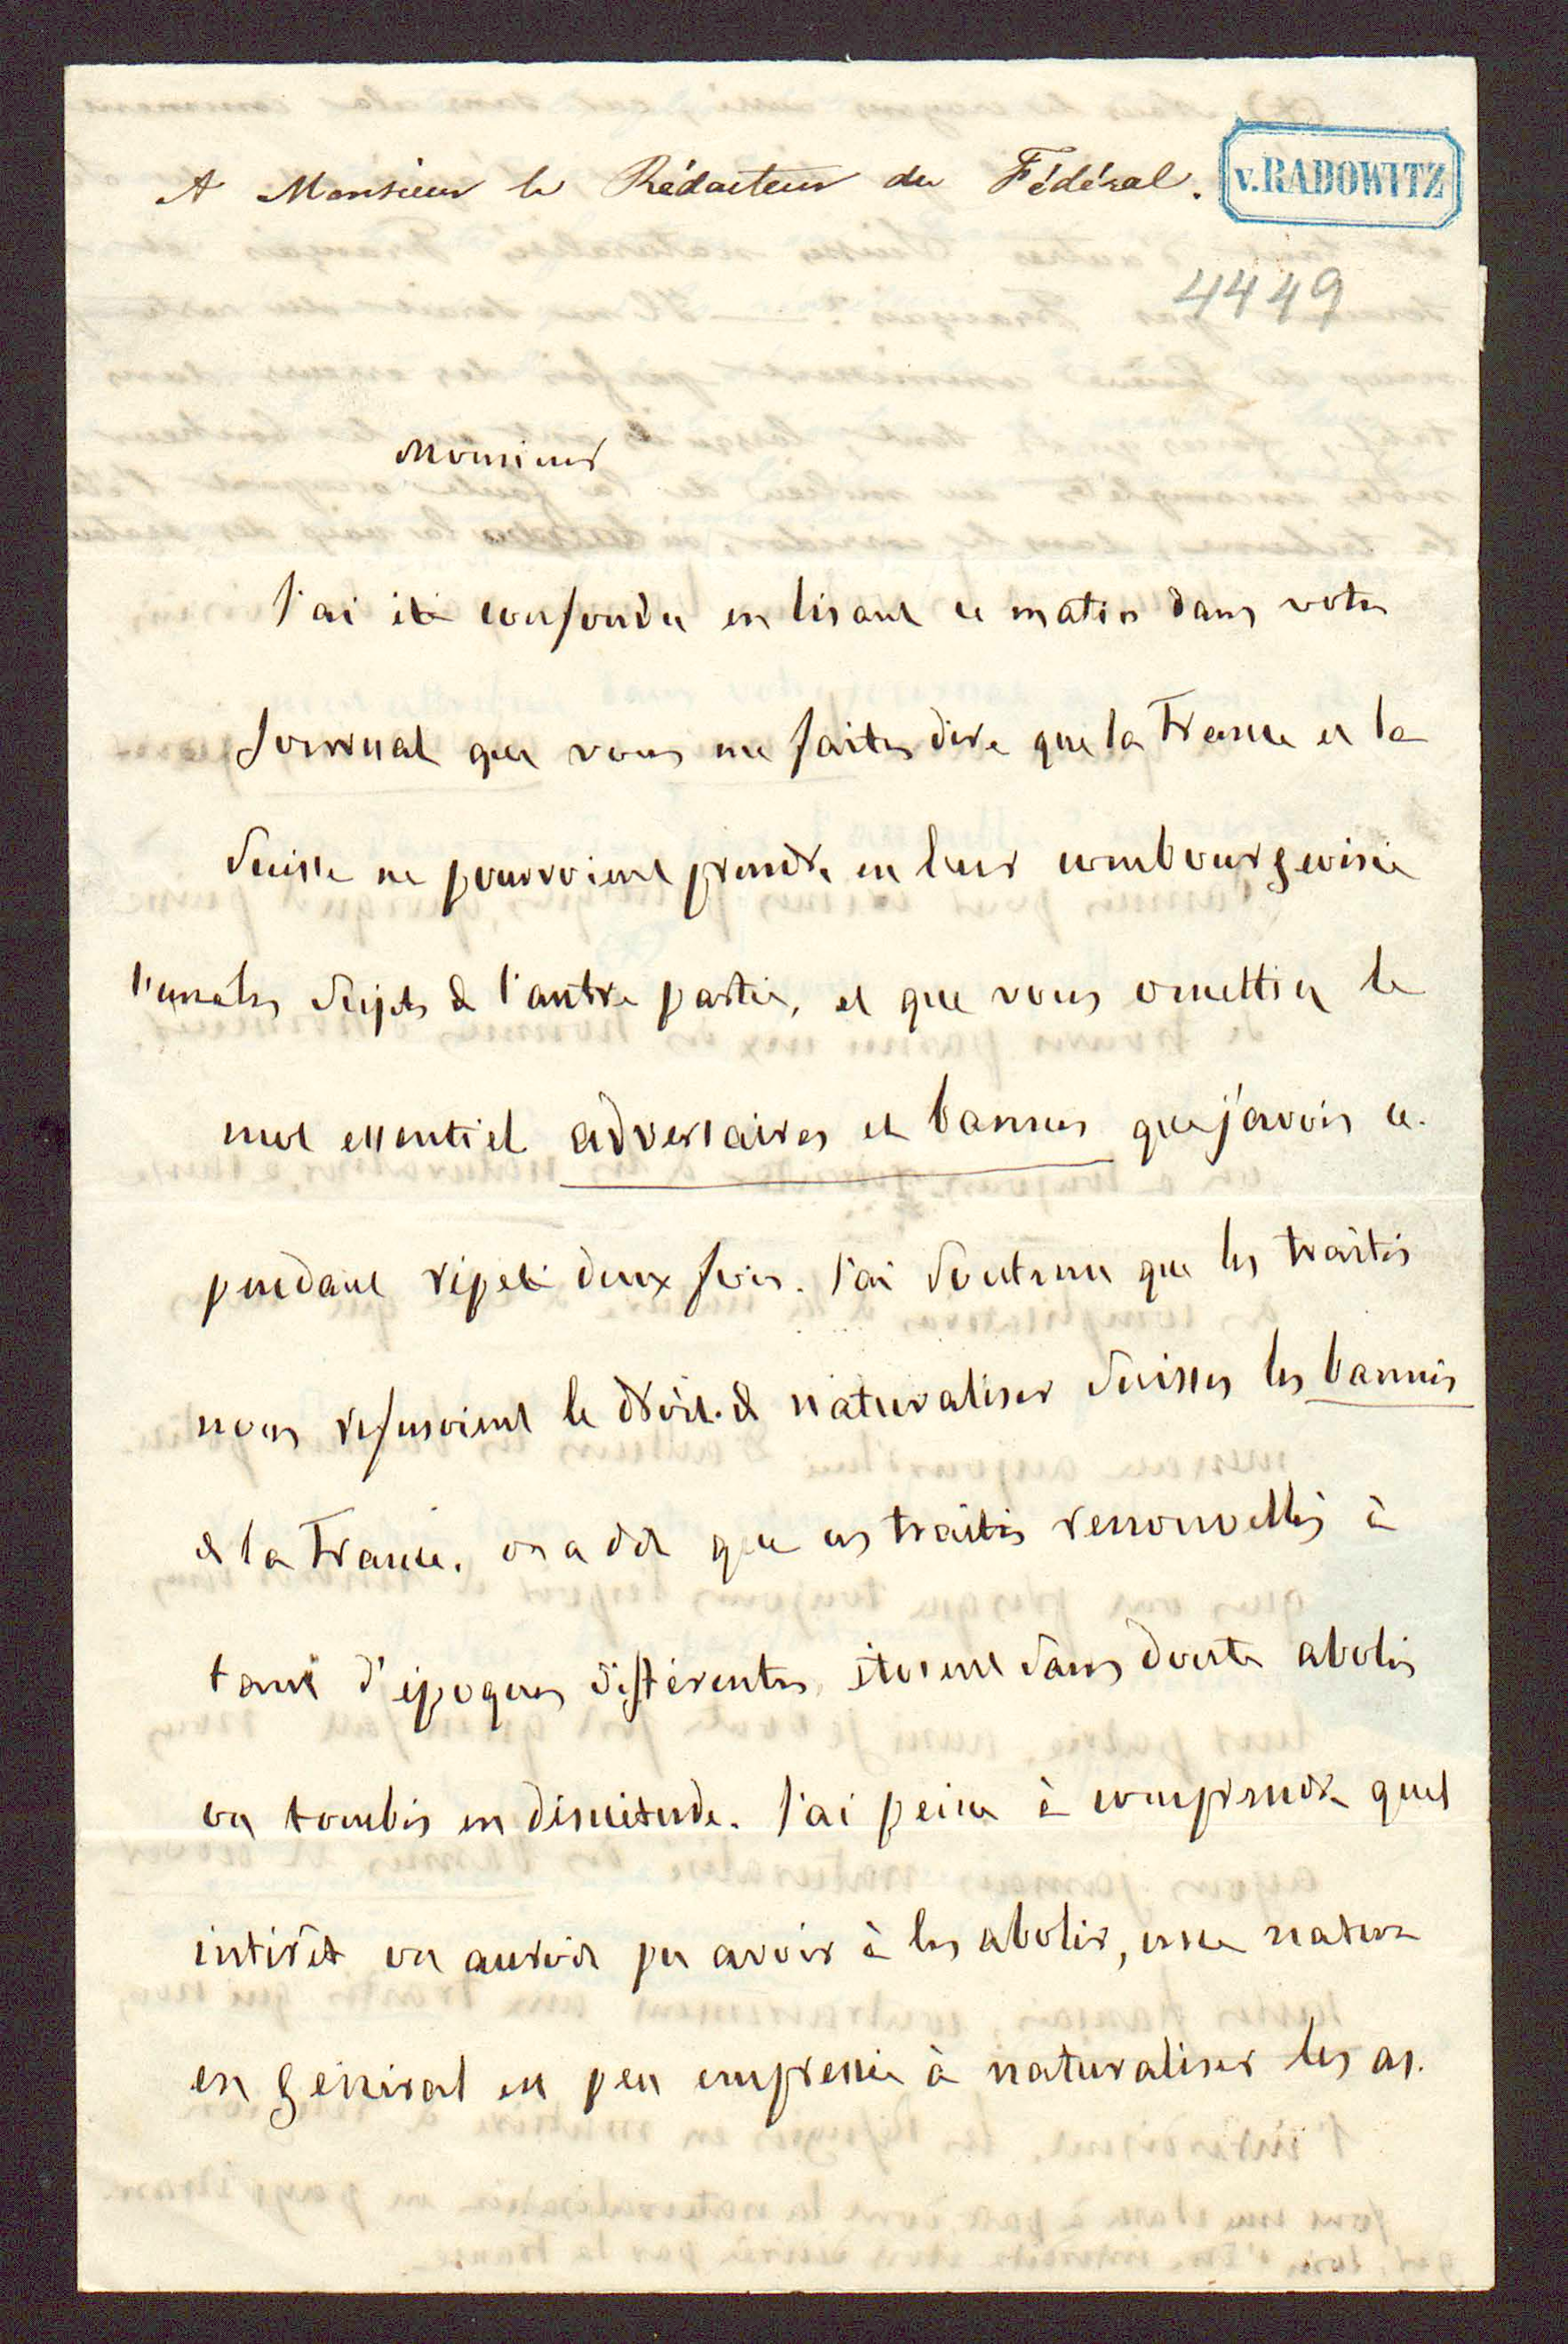 A Monsieur le Rédacteur du Fédéral.
v. RADOWITZ
4449
Monsieur
J'ai été confondu en lisant ce matin dans votre
Journal que vous me faites dire que la France et la
Suisse ne pourroient prendre en leur combourgeoisie
l'une les Sujets de l'autre partie, et que vous omettiez le
mot essentiel adversaires et bannis que j'avois ce-
pendant répété deux fois. J'ai Soutenu que les traités
nous refusoient le droit de naturaliser Suisses les bannis
de la France. on a dit que ces traités renouvellés à
tant d'époques différentes étoient sans doute abolis
ou tombés en désuétude. J'ai peine à comprendre quel
intérêt on auroit pu avoir à les abolir, une nation
en général est peu empressée à naturaliser les as-